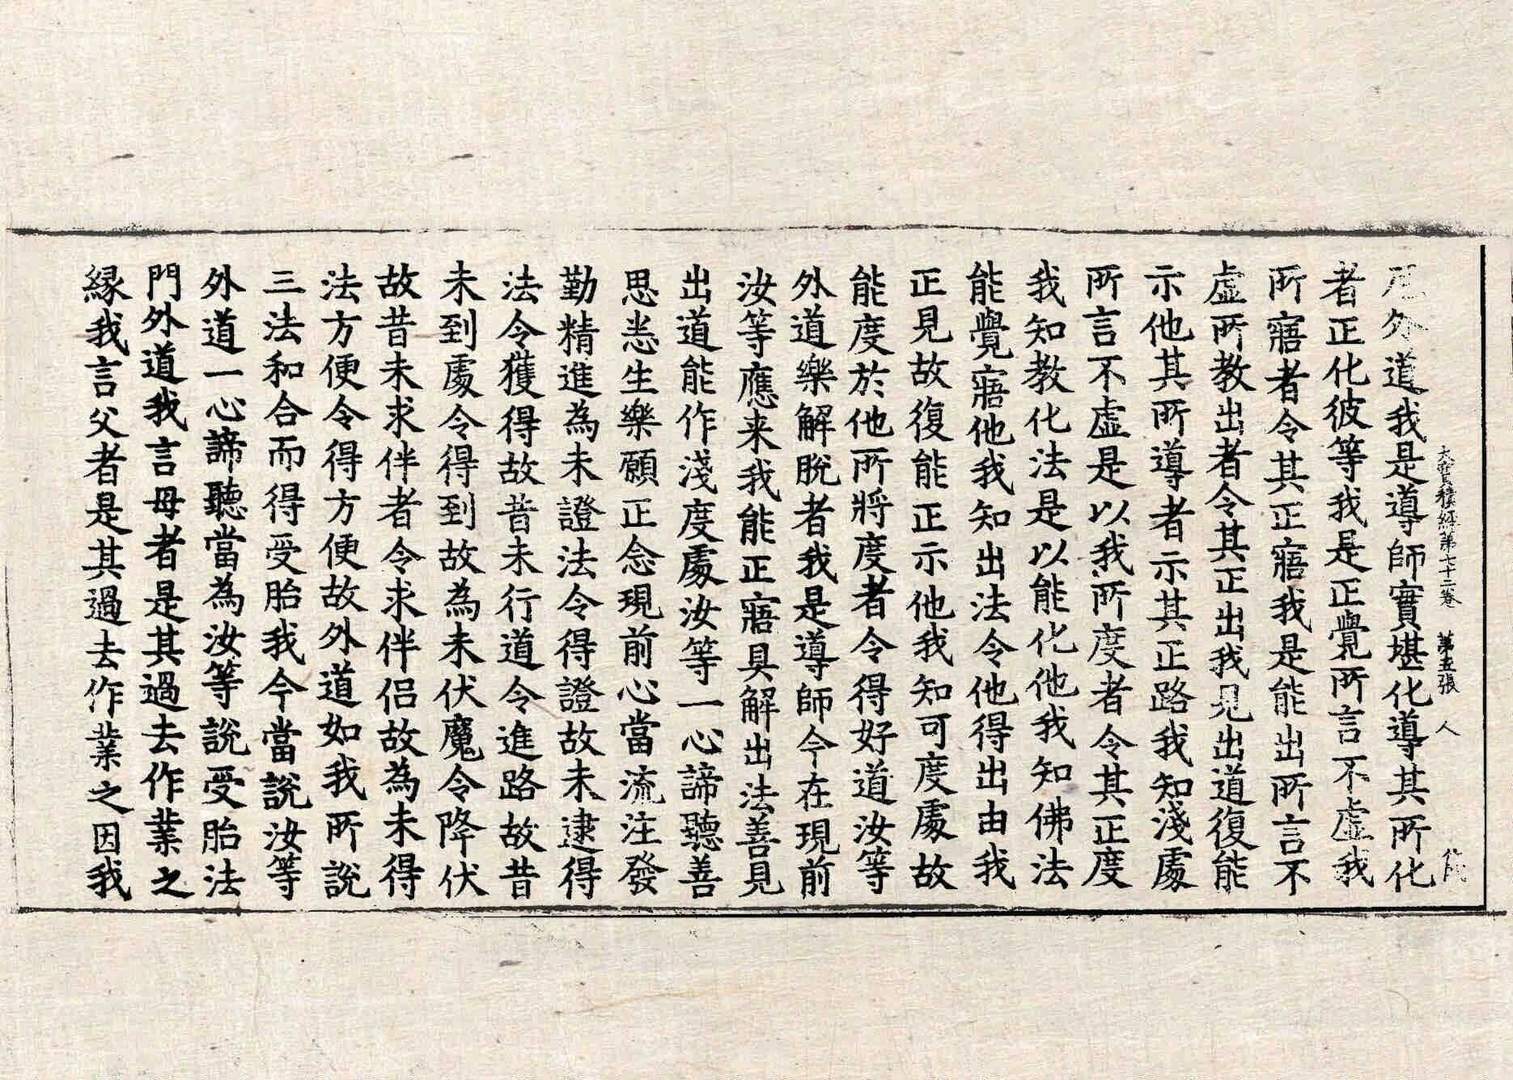 大寶積經第七十二卷 第五張 人
外道我是導師實堪化導其所化
者正化彼等我是正覺所言不虛我
所寤者令其正寤我是能出所言不
虛所教出者令其正出我見出道復能
示他其所導者示其正路我知淺處
所言不虛是以我所度者令其正度
我知教化法是以能化他我知佛法
能覺寤他我知出法令他得出由我
正見故復能正示他我知可度處故
能度於他所將度者令得好道汝等
外道樂解脫者我是導師今在現前
汝等應来我能正寤具解出法善見
出道能作淺度處汝等一心諦聽善
思恙生樂願正念現前心當流注發
勤精進為未證法令得證故未逮得
法令獲得故昔未行道令進路故昔
未到處令得到故為未伏魔令降伏
故昔未求伴者令求伴侶故為未得
法方便令得方便故外道如我所說
三法和合而得受胎我今當說汝等
外道一心諦聽當為汝等說受胎法
門外道我言母者是其過去作業之
緣我言父者是其過去作業之因我